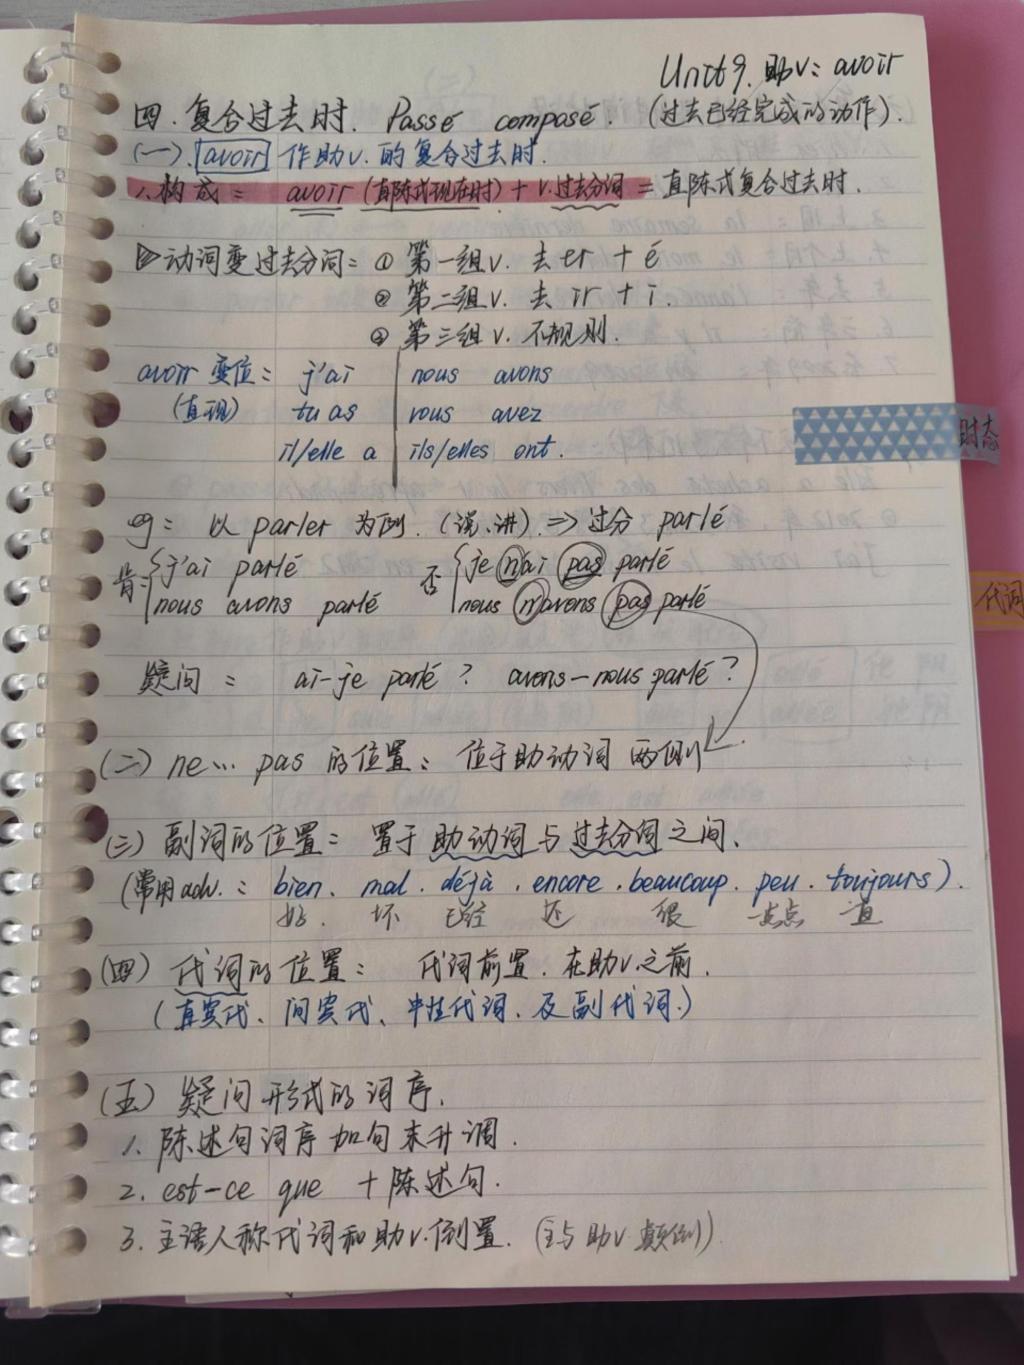 Unit9. 助v: avoir
四. 复合过去时. Passé composé. (过去已经完成的动作).
(一). avoir 作助v. 的复合过去时.
1. 构成: avoir (直陈式现在时) + v.过去分词 = 直陈式复合过去时.
动词变过去分词: ① 第一组v. 去er + é
② 第二组v. 去 ir + i.
③ 第三组v. 不规则.
avoir 变位: j'ai nous avons
(直现) tu as vous avez
il/elle a ils/elles ont.
时态
eg: 以 parler 为例. (说、讲) => 过分 parlé
肯: j'ai parlé 否 je n'ai pas parlé
nous avons parlé nous n'avons pas parlé
代词
疑问: ai-je parlé? avons-nous parlé?
(二) ne... pas 的位置: 位于助动词 两侧
(三) 副词的位置: 置于助动词与过去分词之间.
(常用adv.: bien. mal. déjà. encore. beaucoup. peu. toujours).
好. 坏 已经 还 很 一点点 一直
(四) 代词的位置: 代词前置. 在助v.之前.
(直宾代、间宾代、中性代词、及副代词.)
(五) 疑问形式的词序.
1. 陈述句词序加句末升调.
2. est-ce que + 陈述句.
3. 主语人称代词和助v.倒置. (主与助v.颠倒)